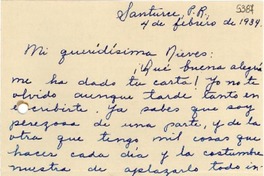 5387
Santurce, P.R.
4 de febrero de 1939.
Mi queridísima Nieves:
¡Qué buena alegría
me ha dado tu carta! Yo no te
olvido aunque tarde tanto en
escribirte. Ya sabes que soy
perezosa de una parte, y de la
otra que tengo mil cosas que
hacer cada día y la costumbre
nuestra de aplazarlo todo in-